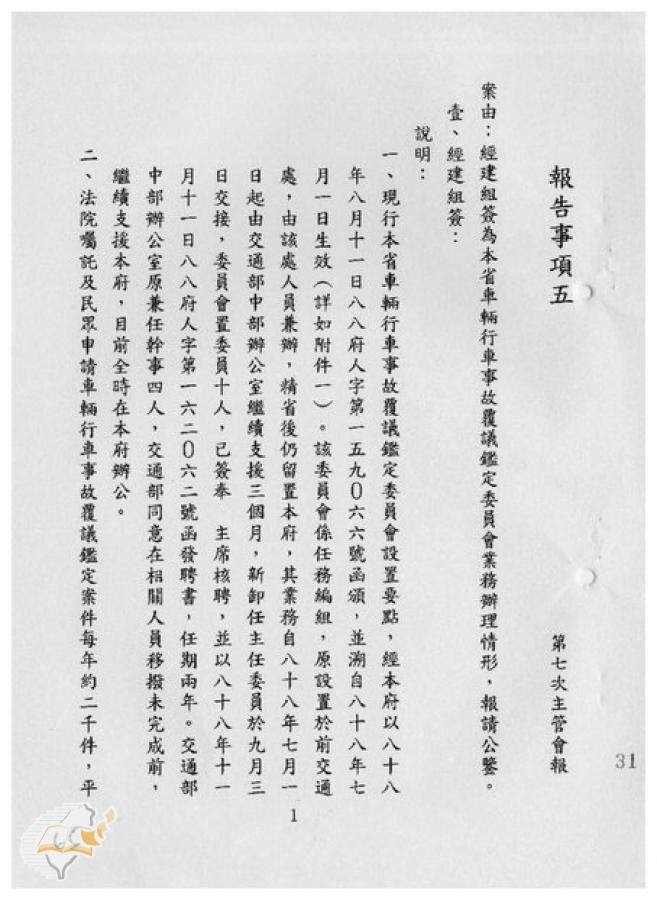 報告事項五
第七次主管會報
案由：經建組簽為本省車輛行車事故覆議鑑定委員會業務辦理情形，報請公鑒。
壹、經建組簽：
說明：
一、現行本省車輛行車事故覆議鑑定委員會設置要點，經本府以八十八
年八月十一日八八府人字第一五九０六六號函頒，並溯自八十八年七
月一日生效（詳如附件一）。該委員會係任務編組，原設置於前交通
處，由該處人員兼辦，精省後仍留置本府，其業務自八十八年七月一
日起由交通部中部辦公室繼續支援三個月，新卸任主任委員於九月三
日交接，委員會置委員十人，已簽奉 主席核聘，並以八十八年十一
月十一日八八府人字第一六二０六二號函發聘書，任期兩年。交通部
中部辦公室原兼任幹事四人，交通部同意在相關人員移撥未完成前，
繼續支援本府，目前全時在本府辦公。
二、法院囑託及民眾申請車輛行車事故覆議鑑定案件每年約二千件，平
1
31